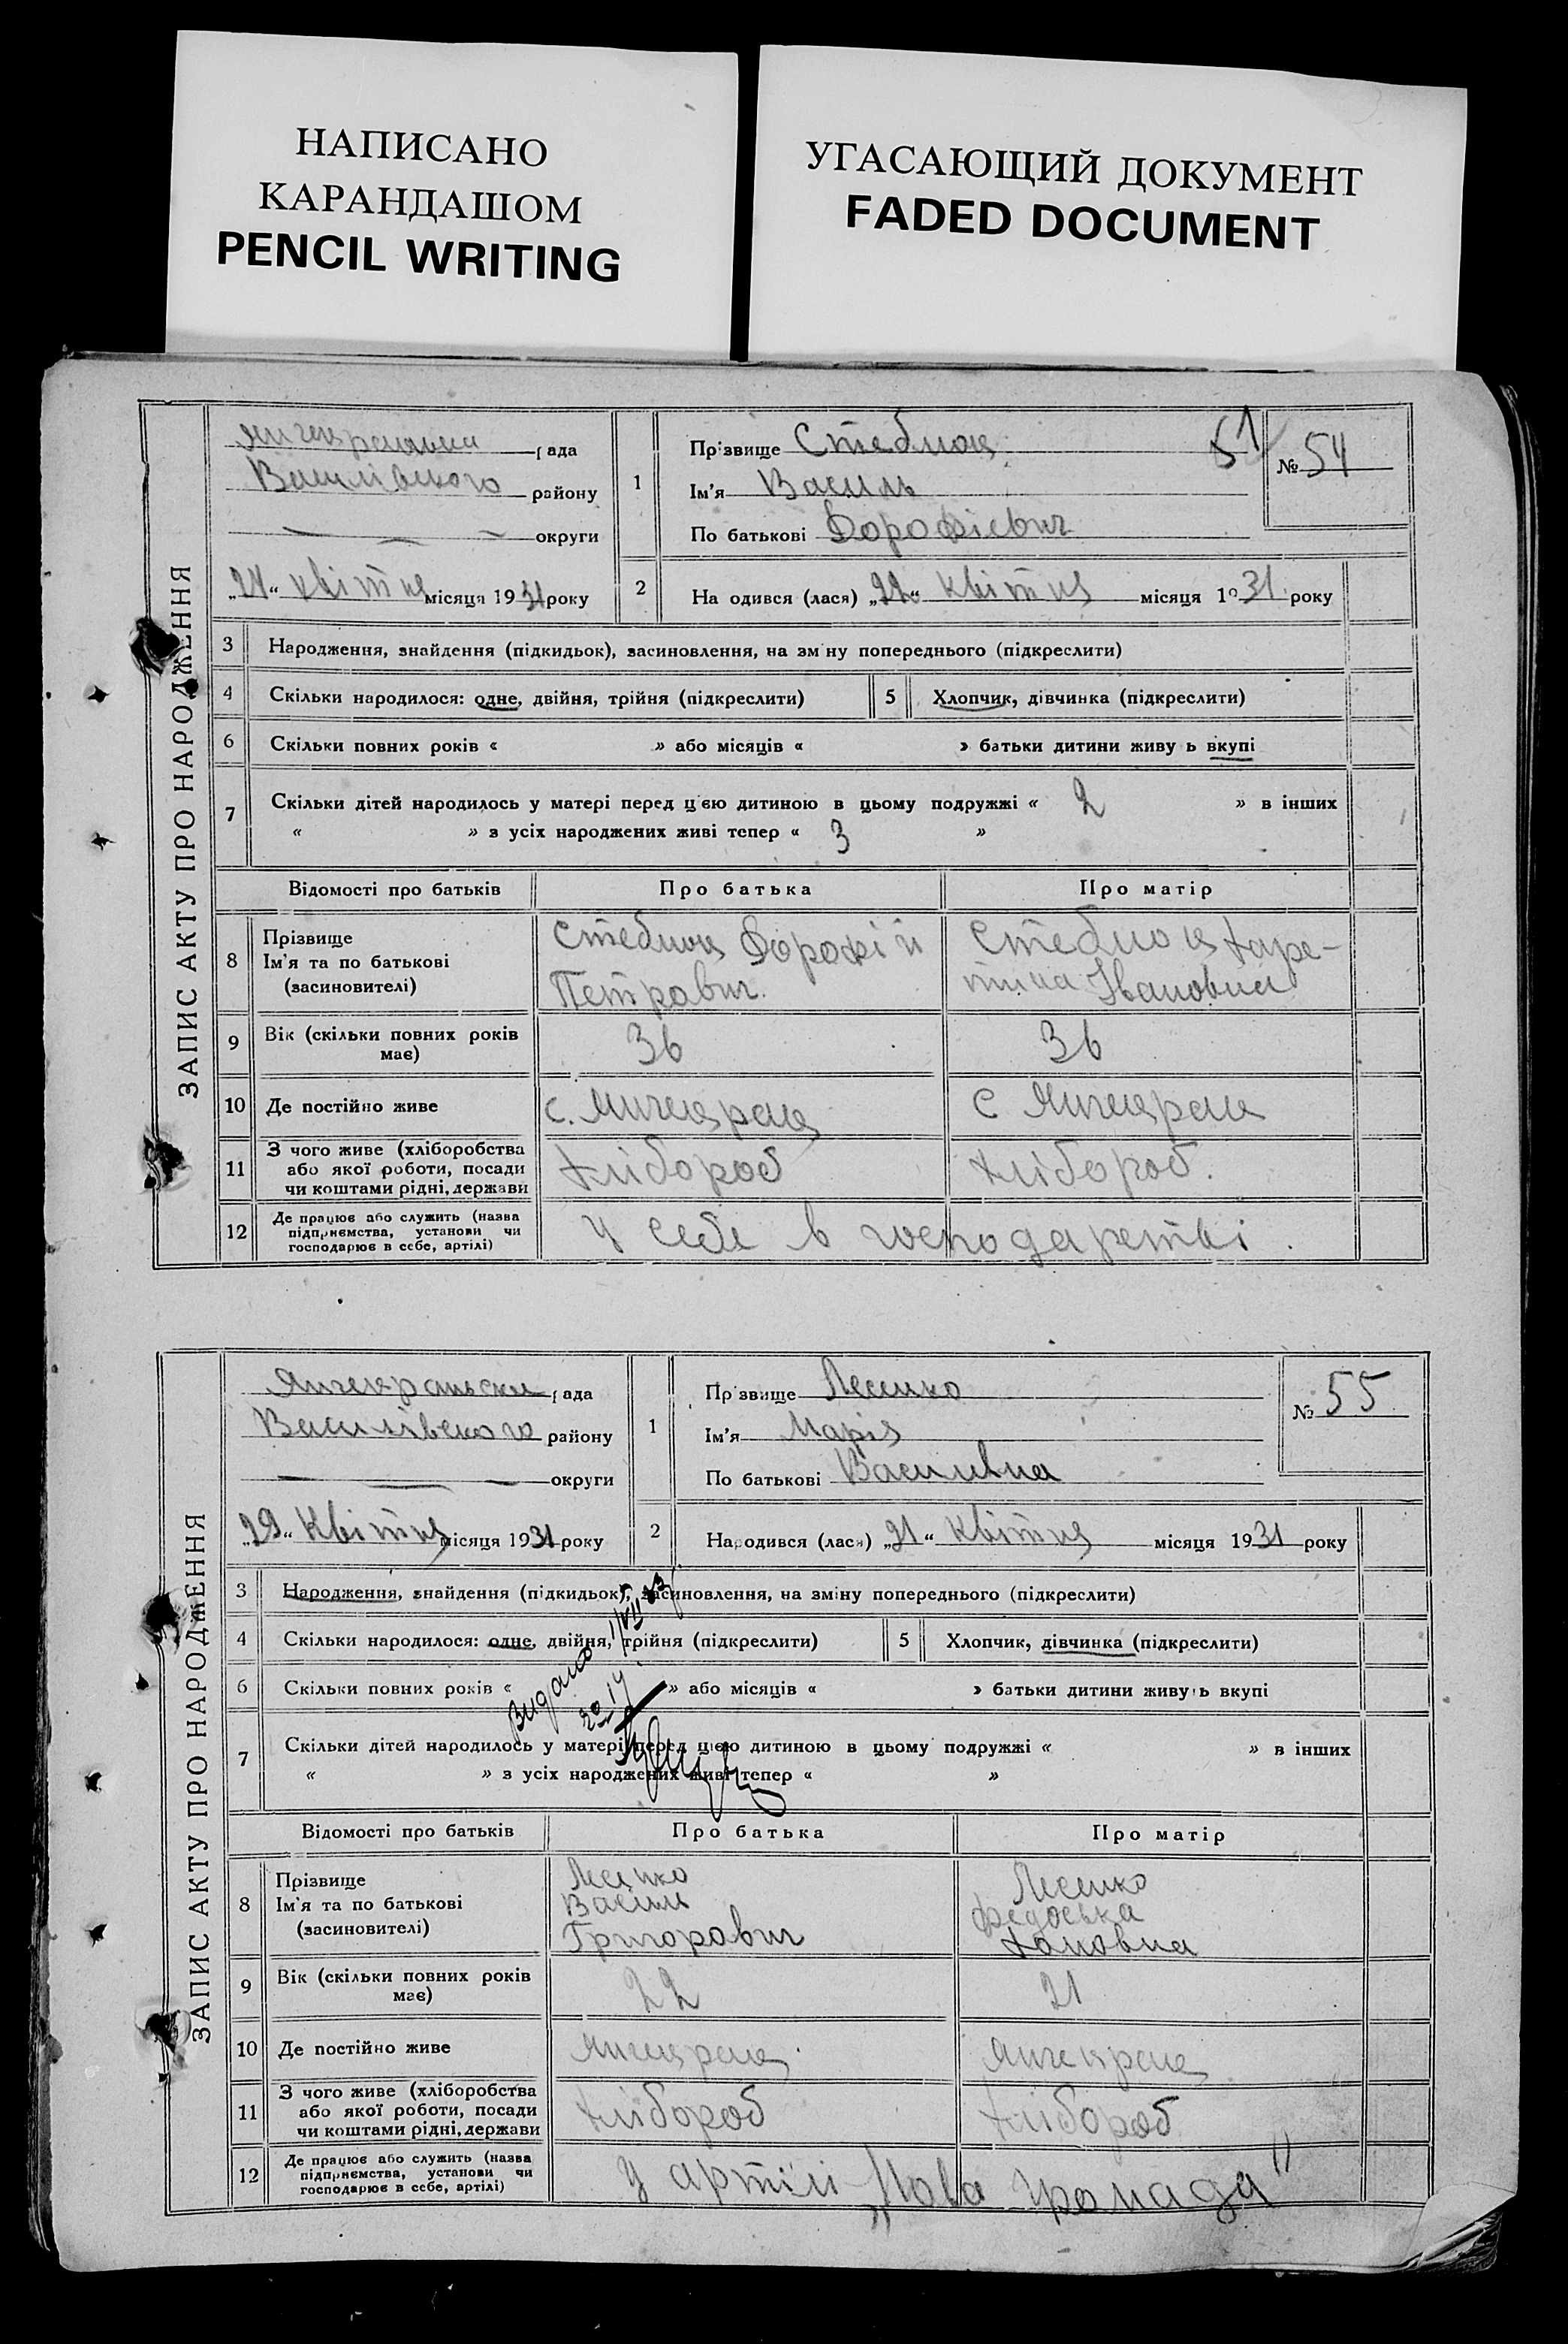 НАПИСАНО
КАРАНДАШОМ
PENCIL WRITING
УГАСАЮЩИЙ ДОКУМЕНТ
FADED DOCUMENT
ЗАПИС АКТУ ПРО НАРОДЖЕННЯ
рада
Василівского району
округи
„24“ квітня місяця 1931 року
1
Прізвище Стеблюк
Ім'я Василь
По батькові Дорофієвич
51
№ 54
2
На одився (лася) „22“ квітня місяця 1931 року
3 Народження, знайдення (підкидьок), засиновлення, на зміну попереднього (підкреслити)
4 Скільки народилося: одне, двійня, трійня (підкреслити) 5 Хлопчик, дівчинка (підкреслити)
6 Скільки повних років « » або місяців « » батьки дитини живу ь вкупі
7 Скільки дітей народилось у матері перед цією дитиною в цьому подружжі « 2 » в інших
« » з усіх народжених живі тепер « 3 »
Відомості про батьків Про батька Про матір
8 Прізвище
Ім'я та по батькові
(засиновителі)
Дорофій
Петрович
Харе-
тина Івановна
9 Вік (скільки повних років має) 36 36
10 Де постійно живе с. Янчекрак с Янчекрак
11 З чого живе (хліборобства
або якої роботи, посади
чи коштами рідні, держави
Хлібороб Хлібороб.
12 Де працює або служить (назва
підприємства, установи чи
господарює в себе, артілі)
У себе в господарстві.
ЗАПИС АКТУ ПРО НАРОДЖЕННЯ
Янчекраньска рада
Василівского району
округи
„29“ Квітня місяця 1931 року
1
Прізвище Лесенко
Ім'я Марія
По батькові Василивна
№ 55
2
Народився (лася) „21“ квітня місяця 1931 року
3 Народження, знайдення (підкидьок), засиновлення, на зміну попереднього (підкреслити)
4 Скільки народилося: одне, двійня, трійня (підкреслити) 5 Хлопчик, дівчинка (підкреслити)
6 Скільки повних років « » або місяців « » батьки дитини живуть вкупі
Видано
7 Скільки дітей народилось у матері перед цією дитиною в цьому подружжі « » в інших
« » з усіх народжених живі тепер « »
Відомості про батьків Про батька Про матір
8 Прізвище
Ім'я та по батькові
(засиновителі)
Лесенко
Василь
Григорович
Лесенко
Федоська
9 Вік (скільки повних років має) 22 21
10 Де постійно живе Янчекрак Янчекрак
11 З чого живе (хліборобства
або якої роботи, посади
чи коштами рідні, держави
Хлібороб Хлібороб
12 Де працює або служить (назва
підприємства, установи чи
господарює в себе, артілі)
У артілі „Нова Громада"